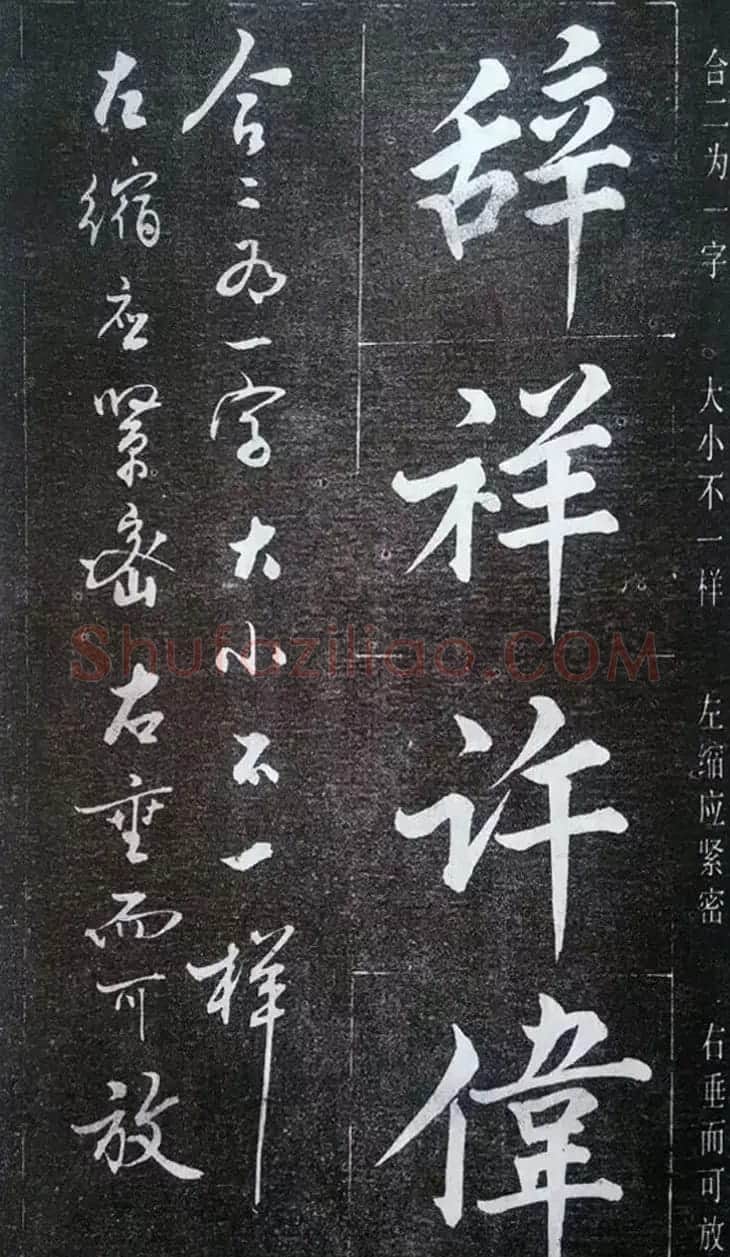 合二为一字 大小不一样 左缩应紧密 右垂而可放
辞
祥
许
偉
合二为一字大小不一样
左缩应紧密右垂而可放
Shufaziliao.COM